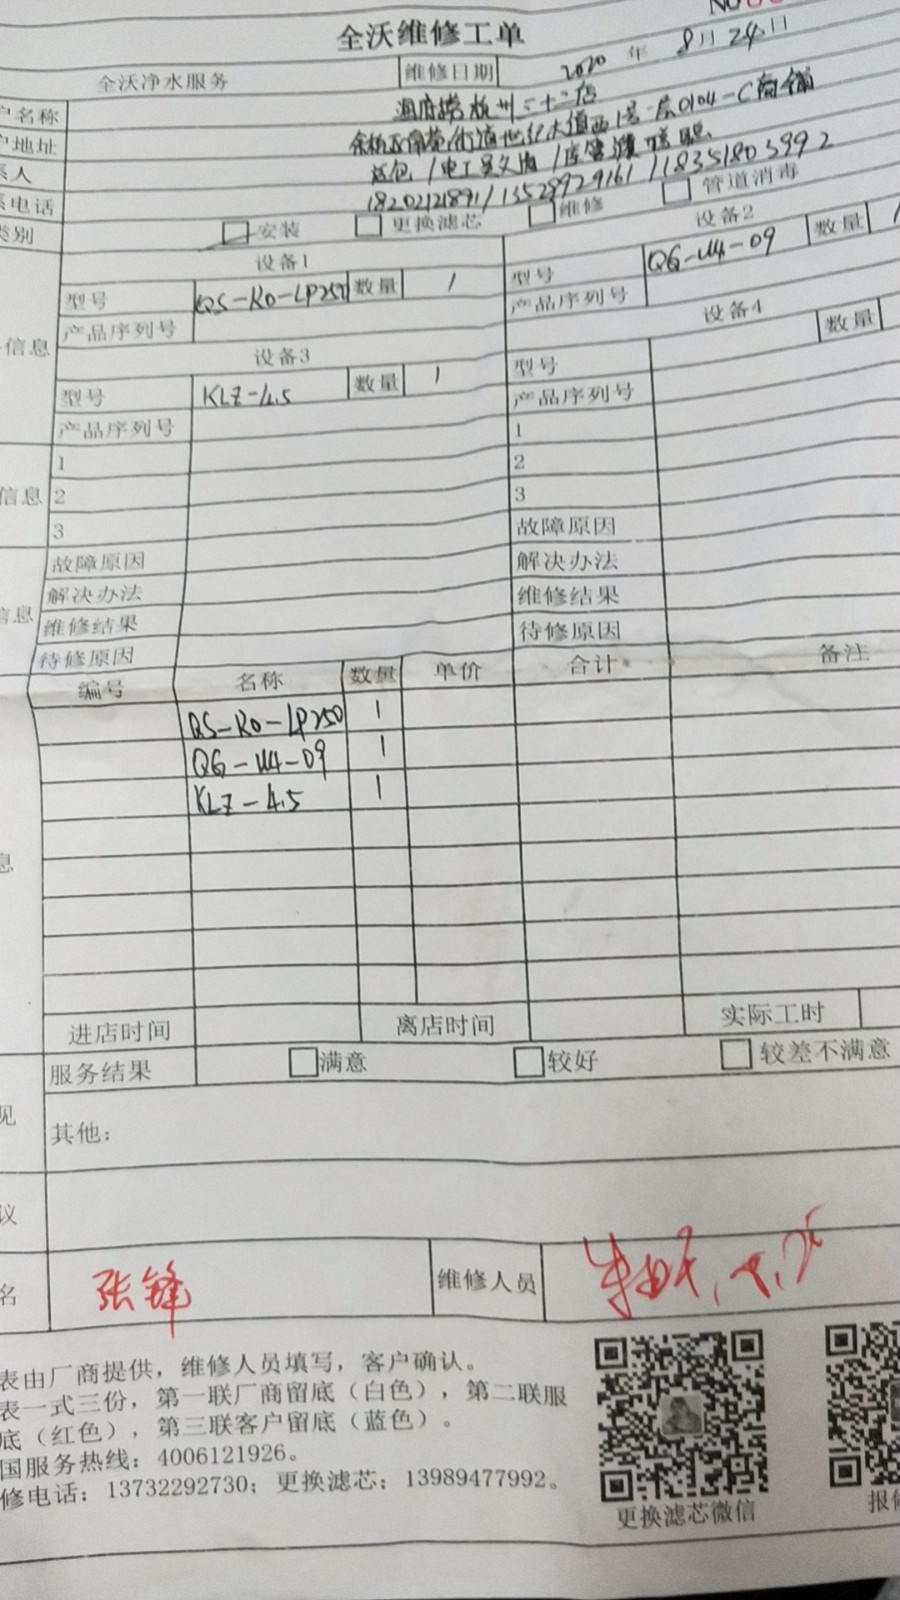 全沃维修工单
全沃净水服务 维修日期 2020 年 8月 24日
户名称 杭州三十二店
户地址 街道世纪大道西1号一层0104-C商铺
系人
系电话 18202121891/13529929161/18351803992
类别 安装 更换滤芯 维修 管道消毒
设备1 设备2
型号 QS-RO-LP250 数量 1 型号 QG-U4-09 数量 1
产品序列号 产品序列号
信息
设备3 设备4
型号 KLZ-4.5 数量 1 型号 数量
产品序列号 产品序列号
1 1
信息 2 2
3 3
故障原因 故障原因
解决办法 解决办法
信息 维修结果 维修结果
待修原因 待修原因
编号 名称 数量 单价 合计 备注
QS-RO-LP250 1
QG-U4-09 1
KLZ-4.5 1
息
进店时间 离店时间 实际工时
服务结果 满意 较好 较差不满意
见
其他：
议
名 张锋 维修人员
表由厂商提供，维修人员填写，客户确认。
表一式三份，第一联厂商留底（白色），第二联服
底（红色），第三联客户留底（蓝色）。
国服务热线：4006121926。
修电话：13732292730；更换滤芯：13989477992。
更换滤芯微信 报修